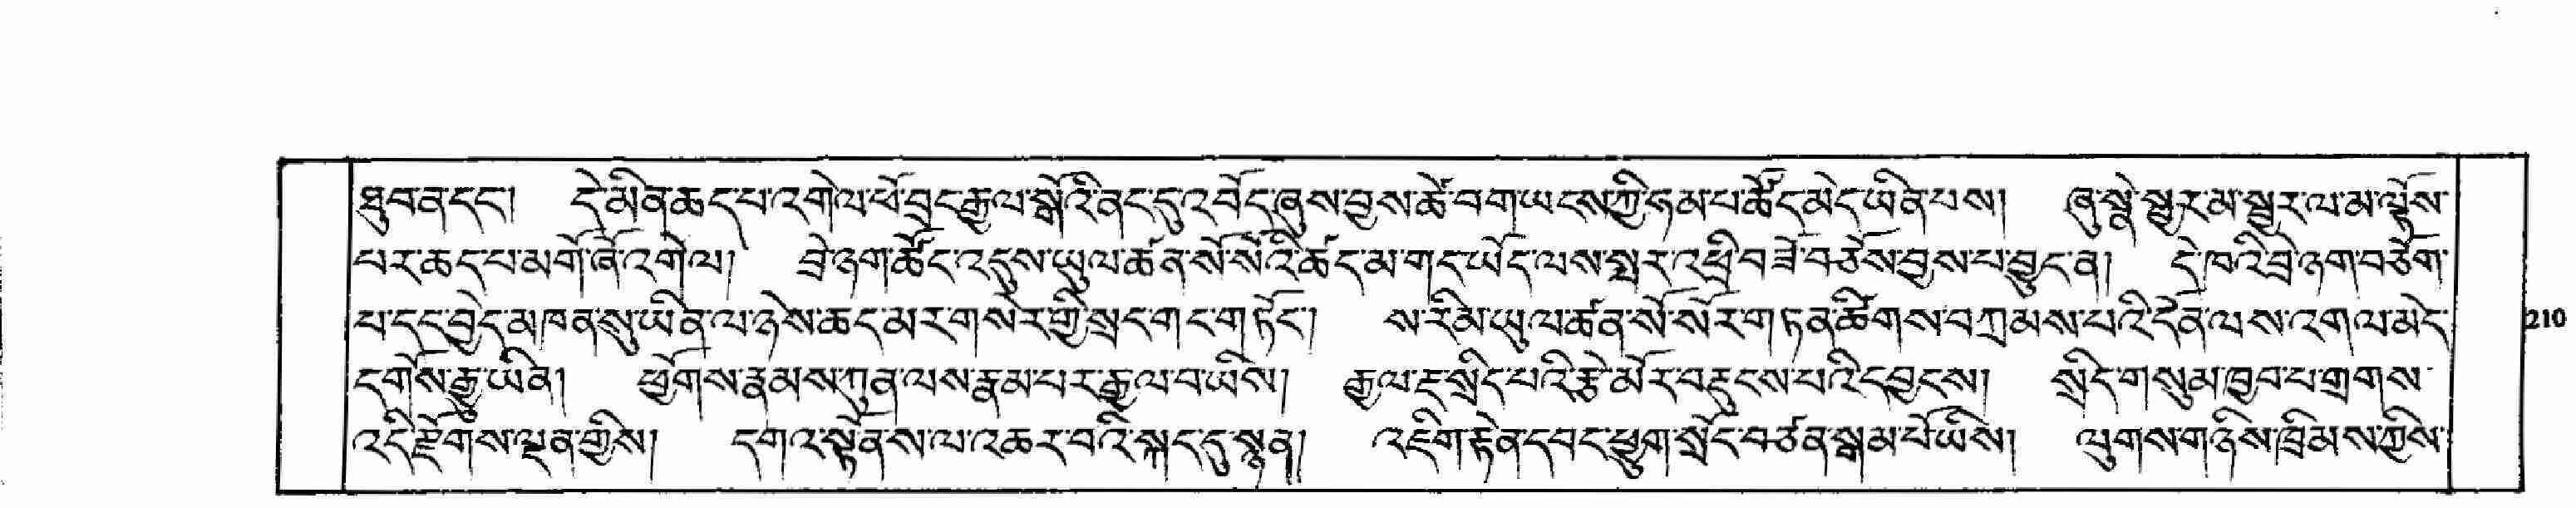 ཐུབ་ན་དང༌། དེ་མིན་ཆད་པ་འགེལ་ཕོ་བྲང་རྒྱལ་སྒོའི་ནང་དུ་འབོད་ཞུས་བྱས་ཚེ་བག་ཡངས་ཀྱི་ཧམ་པ་ཚོད་མེད་ཡིན་པས། ཞུ་སྣེ་སྦྱར་མ་སྦྱར་ལ་མ་ལྟོས་
པར་ཆད་པ་མགོ་ཞོ་འགེལ། བྲེ་ཉག་ཚོང་འདུས་ཡུལ་ཚན་སོ་སོའི་ཚད་མ་གད་ཡོད་ལས་སྤར་འཕྲི་བཟེ་བཅོས་བྱས་པ་བྱུང་ན། དེ་ཁའི་བྲེ་ཉག་བཅོག་
པ་དང་བྱེད་མཁན་སུ་ཡིན་ལ་ཉེས་ཆད་མར་གསེར་གྱི་སྲང་གང་གཏོང༌། ས་རིམ་ཡུལ་ཚན་སོ་སོར་གཏན་ཚིགས་བཀྲམས་པའི་དོན་ལས་འགལ་མེད་
དགོས་རྒྱུ་ཡིན། ཕྱོགས་རྣམས་ཀུན་ལས་རྣམ་པར་རྒྱལ་བ་ཡིས། རྒྱལ་རྔ་སྲིད་པའི་རྩེ་མོར་བརྡུངས་པའི་དབྱངས། སྲིད་གསུམ་ཁྱབ་པ་གྲགས་
འདི་རྫོགས་ལྡན་གྱིས། དགའ་སྟོན་ས་ལ་འཆར་བའི་སྐད་དུ་སྙན། འཇིག་རྟེན་དབང་ཕྱུག་སྲོང་བཙན་སྒམ་པོ་ཡིས། ལུགས་གཉིས་ཁྲིམས་ཀྱིས་
210